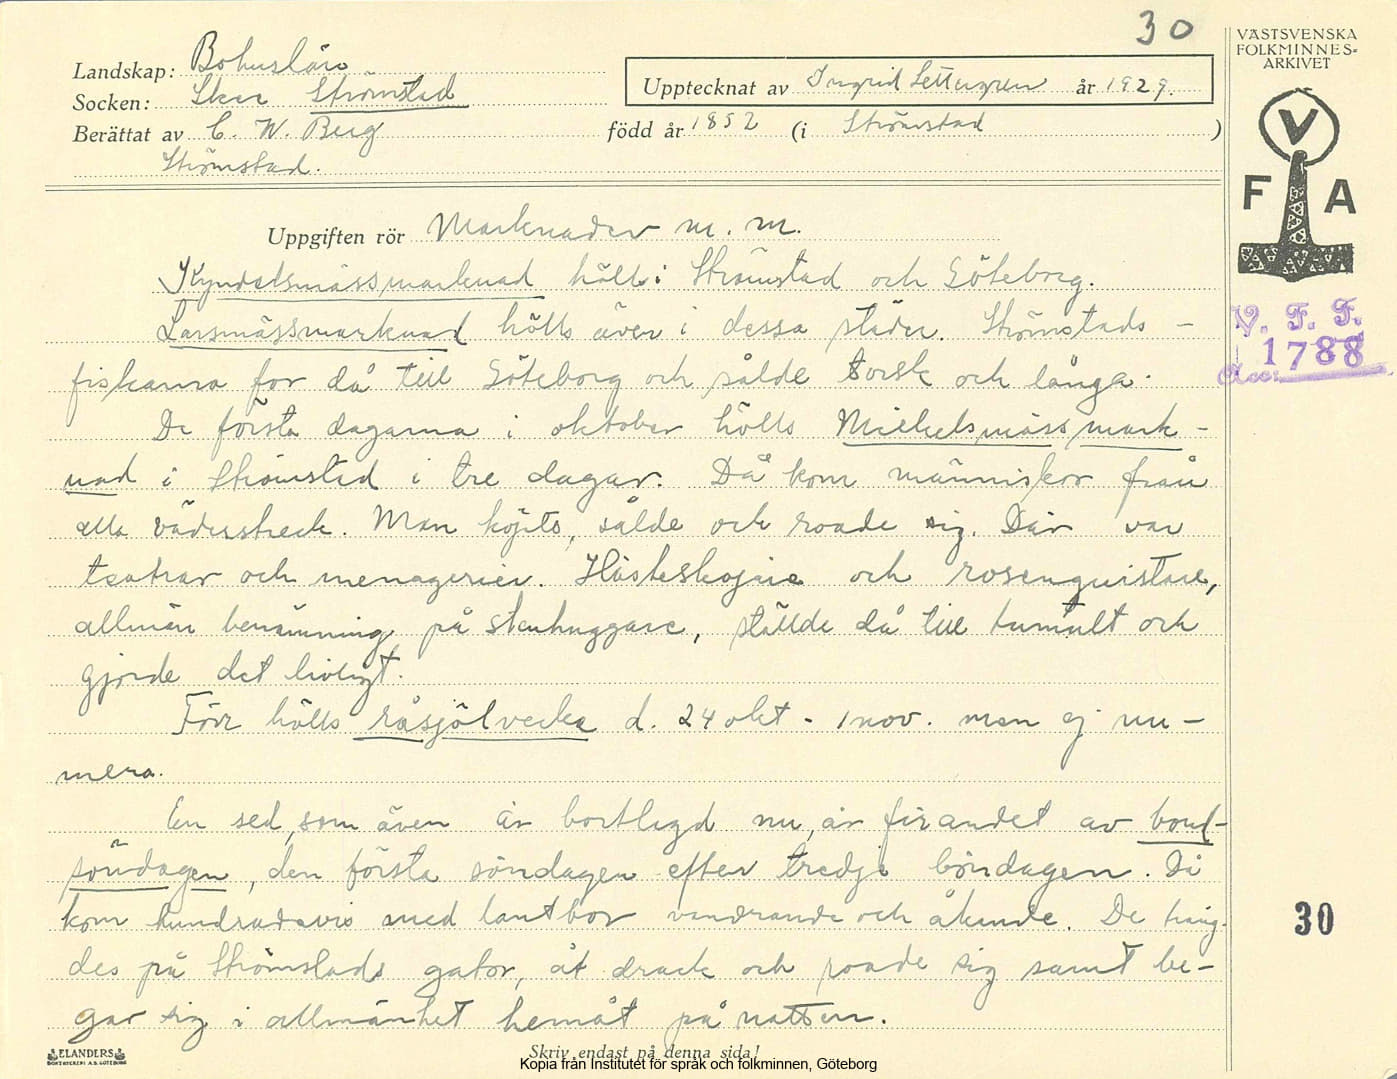 30
VÄSTSVENSKA
FOLKMINNES-
ARKIVET
Landskap: Bohuslän
Upptecknat av Ingrid Settergren år 1929.
Socken: Skee Strömstad
Berättat av C. W. Berg född år 1852 (i Strömstad )
Strömstad.
V
F A
Uppgiften rör Marknader m. m.
Kyndelsmässmarknad hölls i Strömstad och Göteborg.
Larsmässmarknad hölls även i dessa städer. Strömstads-
fiskarna for då till Göteborg och sålde torsk och långa.
De första dagarna i oktober hölls Mickelsmässmark-
nad i Strömstad i tre dagar. Då kom människor från
alla väderstreck. Man köpte, sålde och roade sig. Där var
teatrar och menagerier. Hästeskojare och rosenquistare,
allmän benämning på stenhuggare, ställde då till tumult och
gjorde det livligt.
Förr hölls råsjölvecka d. 24 okt - 1 nov. men ej nu-
mera.
En sed, som även är bortlagd nu, är firandet av bond-
söndagen, den första söndagen efter tredje böndagen. Då
kom hundradevis med lantbor vandrande och åkande. De träng-
des på Strömstads gator, åt drack och roade sig samt be-
gav sig i allmänhet hemåt på natten.
V. F. F.
Acc: 1788
30
ELANDERS
BOKTRYCKERI A.B. GÖTEBORG
Skriv endast på denna sida!
Kopia från Institutet för språk och folkminnen, Göteborg